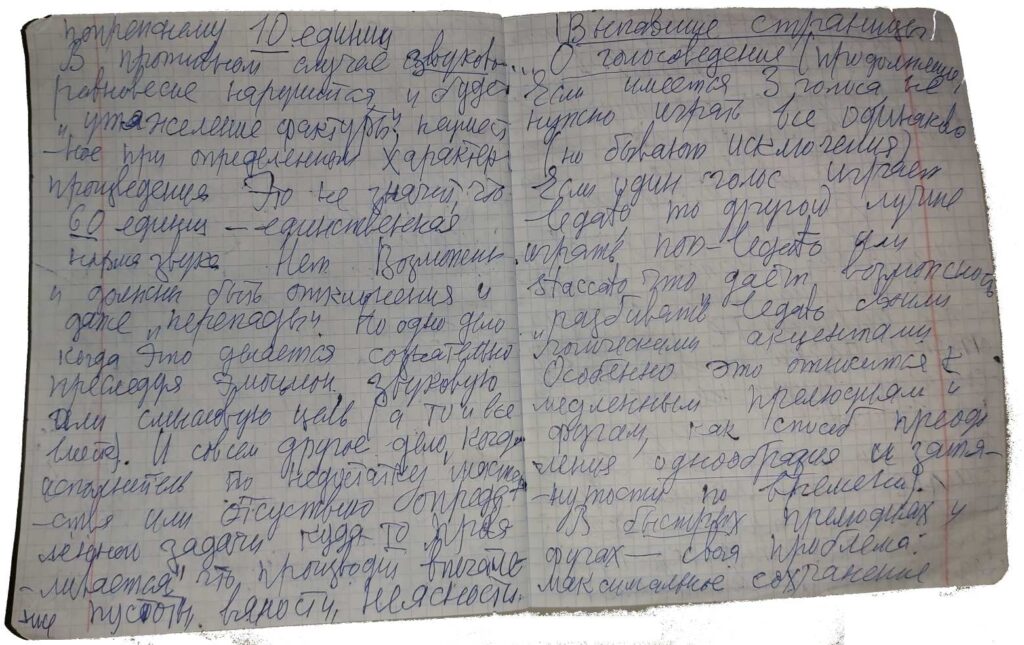 попрежнему 10 единиц
В противном случае звуково
равновесие нарушится и буде
и утяжеление фактуры, неумест
-ное при определенном характер
произведения Это не значит, что
60 единиц — единственная
норма звука Нет Возможны
и должны быть отклонения и
даже „перепады". Но одно дело
когда это делается сознательно
преследуя эмоцион, звуковую
или смысловую цель (а то и все
вместе). И совсем другое дело, когда
исполнитель по недостатку мастер
-ства или отсутствию опреде
ленной задачи куда-то
-ливается" что производит впечатле
-ние пустоты, вялости, неясности.
Выпавшие страницы
О голосоведении (продолжение)
Если имеется 3 голоса не
нужно играть все одинаково
(но бывают исключения)
Если один голос играет
legato то другой лучше
играть non-legato или
staccato что даёт возможность
„разбивать" legato своими
„логическими акцентами"
Особенно это относится к
медленным прелюдиям и
фугам, как способ преодо
ления однообразия и затя-
-нутости по времени).
В быстрых прелюдиях и
фугах — своя проблема:
максимальное сохранение